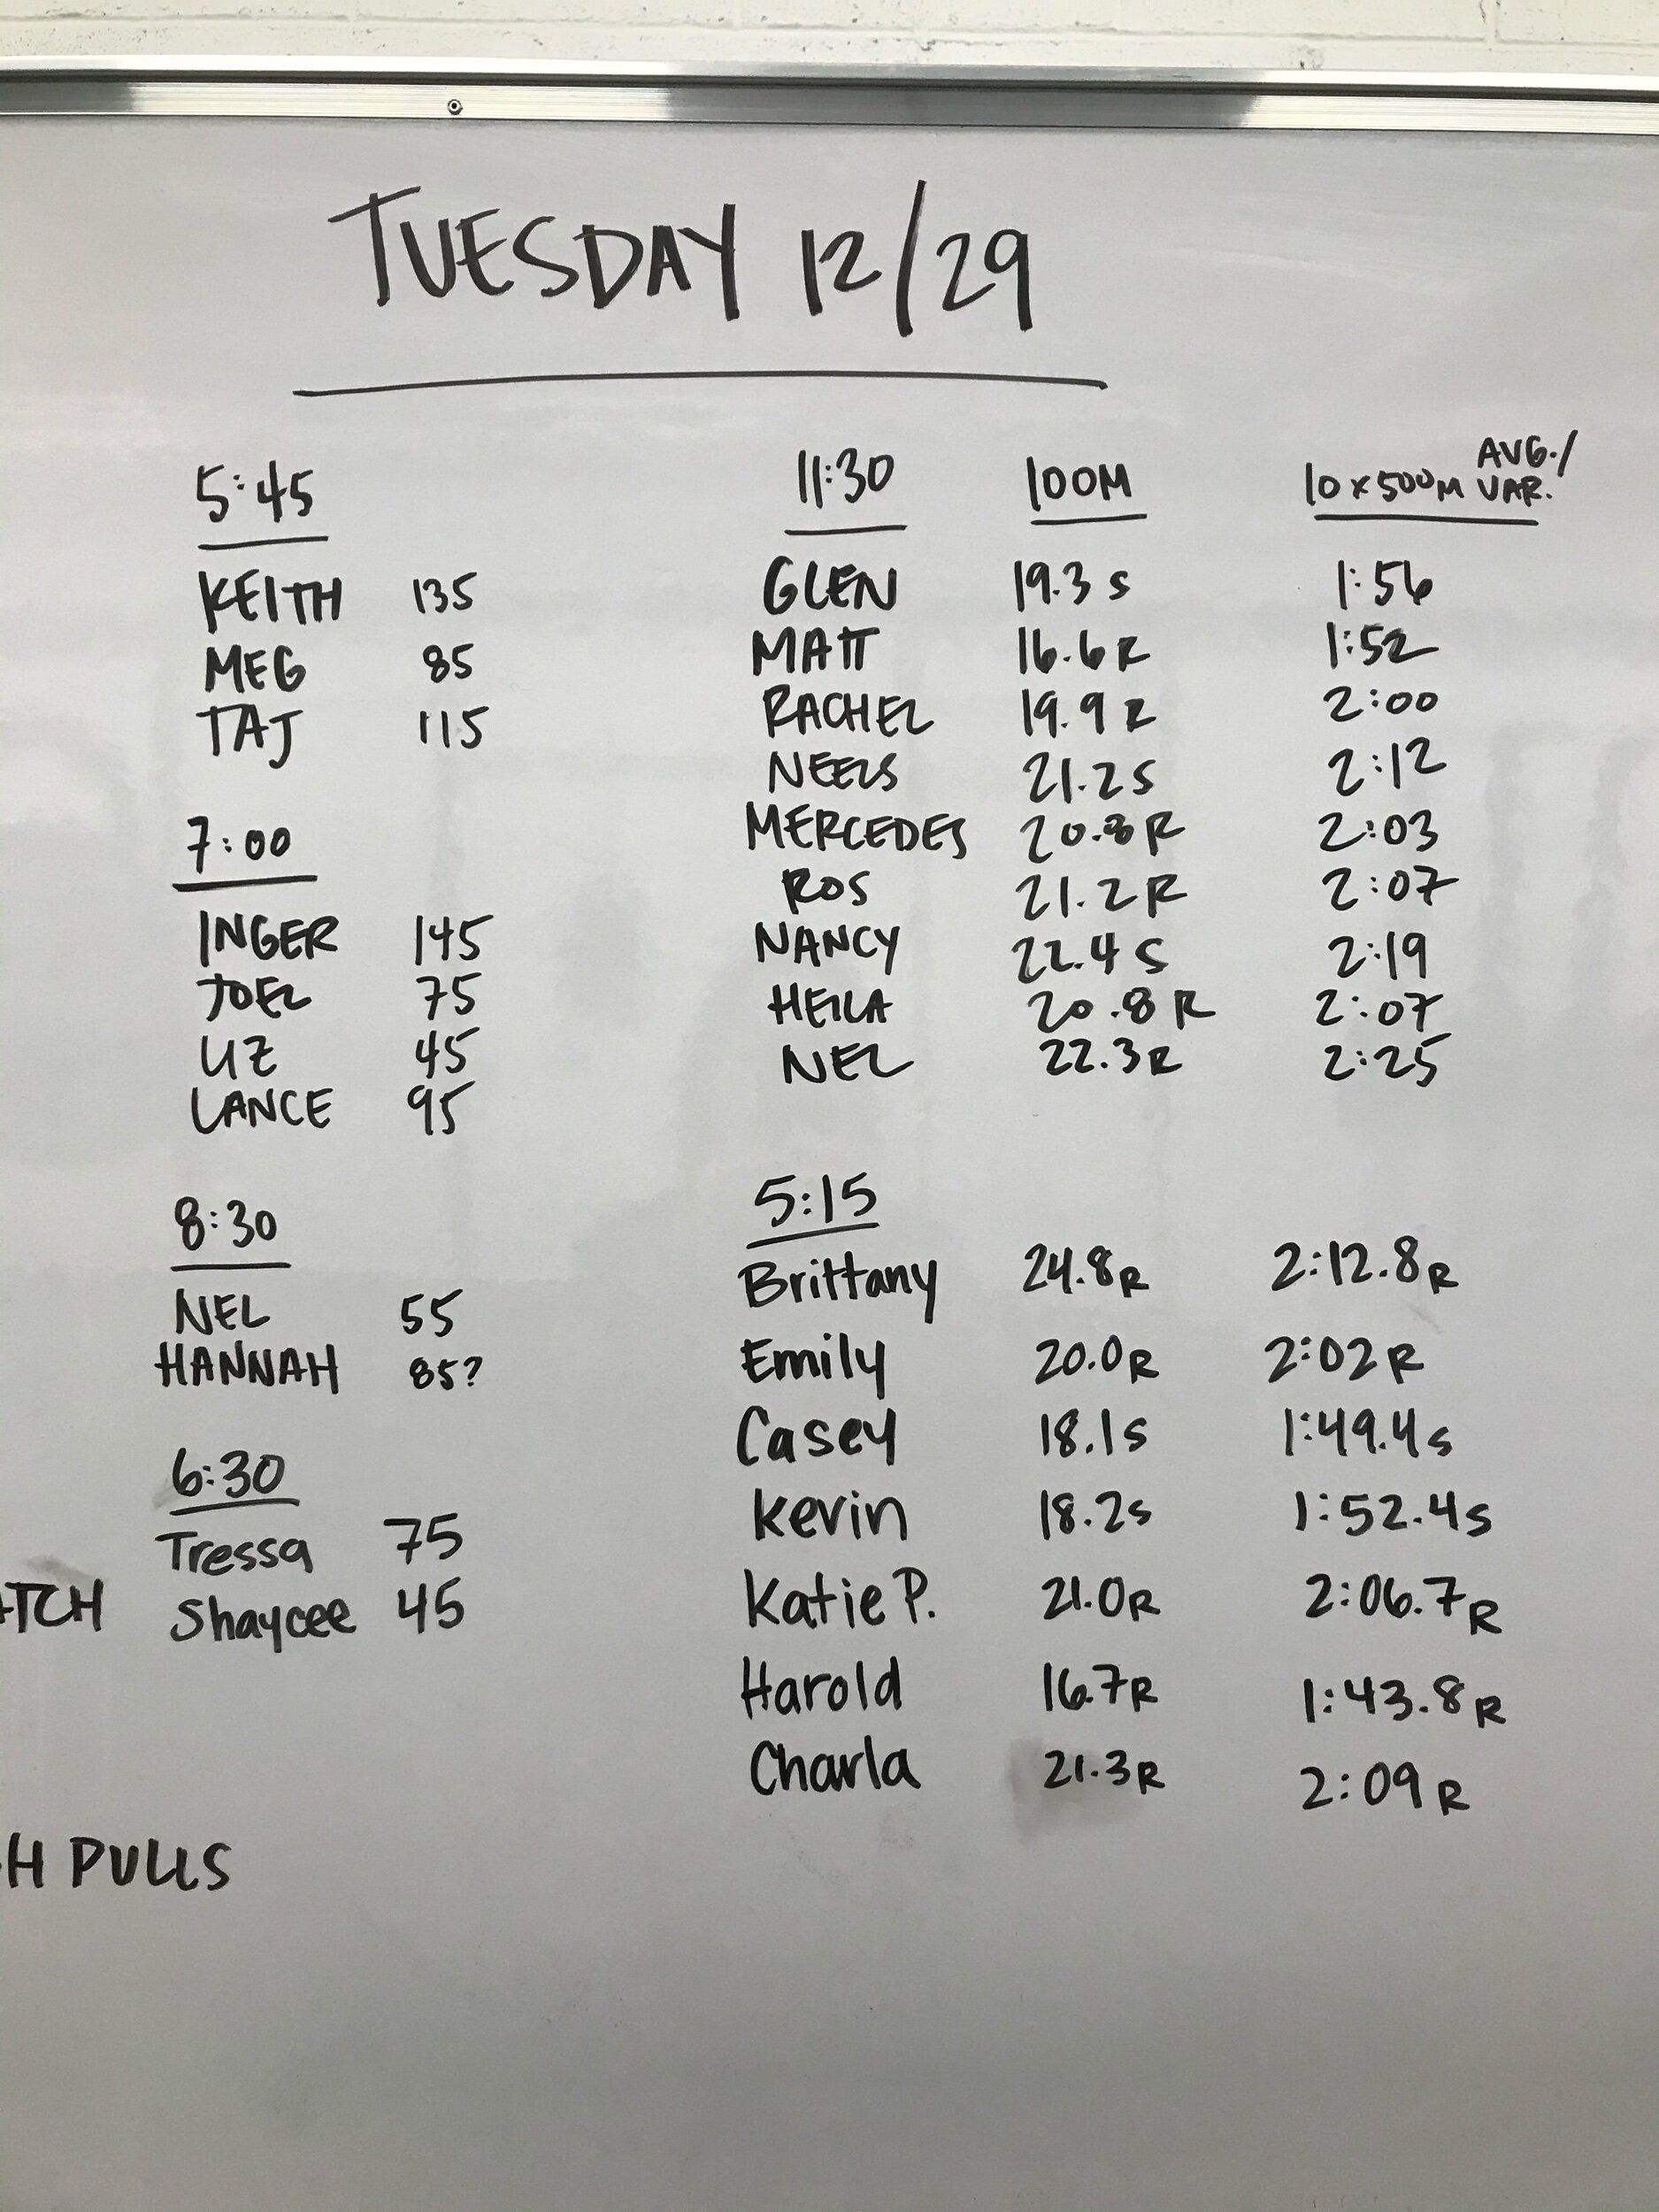 TUESDAY 12/29
5:45
KEITH 135
MEG 85
TAJ 115
7:00
INGER 145
JOEL 75
LIZ 45
LANCE 95
8:30
NEL 55
HANNAH 85?
6:30
Tressa 75
Shaycee 45
ATCH
H PULLS
11:30 100M 10x500M AVG./VAR.
GLEN 19.3 S 1:56
MATT 16.6 R 1:52
RACHEL 19.9 R 2:00
NEELS 21.2 S 2:12
MERCEDES 20.8 R 2:03
ROS 21.2 R 2:07
NANCY 22.4 S 2:19
HEILA 20.8 R 2:07
NEL 22.3 R 2:25
5:15
Brittany 24.8 R 2:12.8 R
Emily 20.0 R 2:02 R
Casey 18.1 s 1:49.4 s
Kevin 18.2 s 1:52.4 s
Katie P. 21.0 R 2:06.7 R
Harold 16.7 R 1:43.8 R
Charla 21.3 R 2:09 R